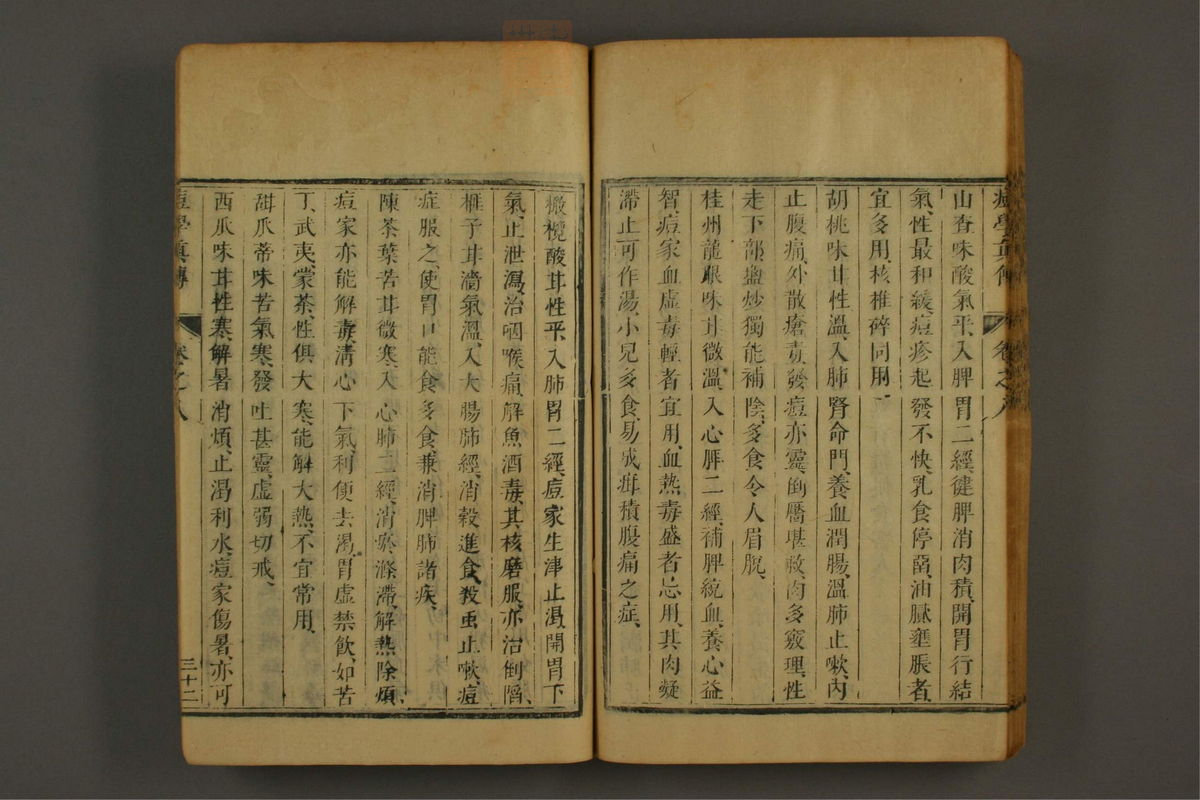 痘學眞傳 卷之八
山查味酸氣平、入脾胃二經、健脾消肉積、開胃行結
氣、性最和緩、痘疹起發不快、乳食停蓄、油膩壅脹者、
宜多用、核椎碎同用
胡桃味甘性溫、入肺腎命門、養血潤腸、溫肺止嗽、內
止腹痛、外散瘡毒、發痘亦靈、倒靨堪救、肉多竅理、性
走下部、鹽炒獨能補陰、多食令人眉脫、
桂州龍眼味甘微溫、入心脾二經、補脾統血、養心益
智、痘家血虛毒輕者宜用、血熱毒盛者忌用、其肉凝
滯止可作湯、小兒多食、易成疳積腹痛之症、
橄欖酸甘性平、入肺胃二經、痘家生津止渴、開胃下
氣、止泄瀉、治咽喉痛、解魚酒毒、其核磨服、亦治倒陷、
榧子甘濇氣溫、入大腸肺經、消穀進食、殺虫止嗽、痘
症服之、使胃口能食多食、兼消脾肺諸疾、
陳茶葉苦甘微寒、入心肺二經、消瘀滌滯、解熱除煩、
痘家亦能解毒、清心下氣、利便去渴、胃虛禁飲、如苦
丁、武夷、蒙茶、性俱大寒、能解大熱、不宜常用、
甜瓜蒂味苦氣寒、發吐甚靈、虛弱切戒、
西瓜味甘性寒、解暑消煩、止渴利水、痘家傷暑、亦可
痘學眞傳 卷之八 三十二